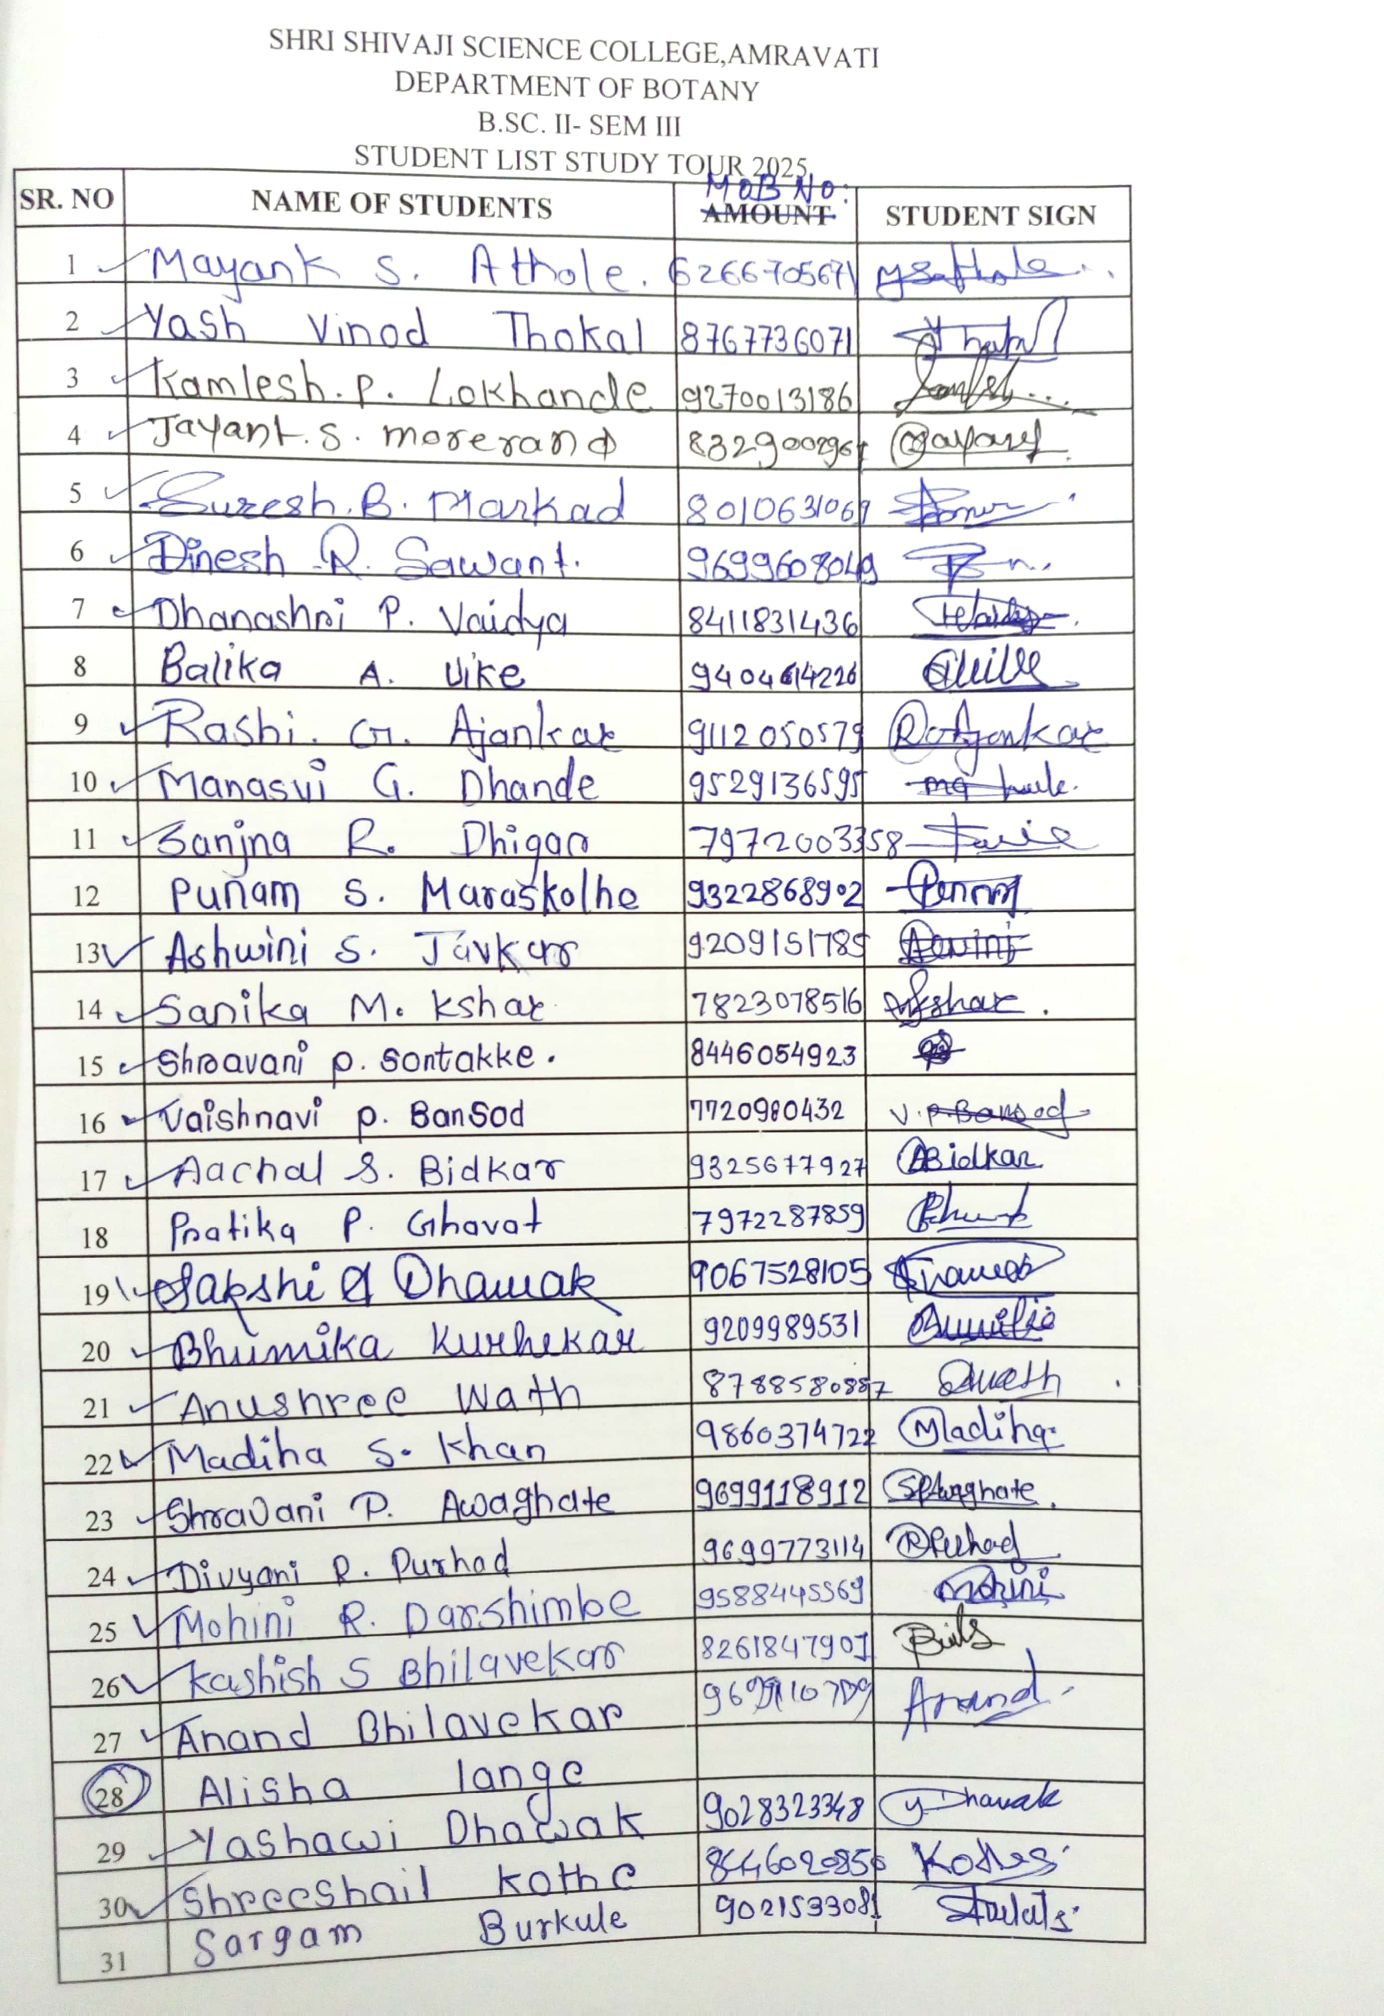 SHRI SHIVAJI SCIENCE COLLEGE,AMRAVATI
DEPARTMENT OF BOTANY
B.SC. II- SEM III
STUDENT LIST STUDY TOUR 2025
MOB NO:
SR. NO NAME OF STUDENTS AMOUNT STUDENT SIGN
1 Mayank S. Athole. 6266705671
2 Yash Vinod Thokal 8767736071
3 Kamlesh.P. Lokhande 9270013186
4 Jayant.S. morerand
5 Suresh.B. Markad 8010631069
6 Dinesh R. Sawant. 9699608049
7 Dhanashri P. Vaidya 8411831436
8 Balika A. Uike 9404614226
9 Rashi. G. Ajankar 9112050579 R.G.Ajankar
10 Manasvi G. Dhande 9529136595
11 Sanjna R. Dhigar 7972003358
12 Punam S. Maraskolhe 9322868902
13 Ashwini S. Javkar 9209151785
14 Sanika M. Kshar 7823078516
15 Shravani P. Sontakke. 8446054923
16 Vaishnavi P. Bansod 7720980432 V.P.Bansod
17 Aachal S. Bidkar 9325677927 ABidkar
18 Pratika P. Ghavat 7972287859
19 Sakshi Dhawak 9067528105
20 Bhumika Kurhekar 9209989531
21 Anushree Wath 8788580887
22 Madiha S. Khan 9860374722 Madiha
23 Shravani P. Awaghate 9699118912
24 Divyani R. Purhad 9699773114
25 Mohini R. Darshimbe 9588445569 Mohini
26 Kashish S Bhilavekar 8261847907
27 Anand Bhilavekar Anand
28 Alisha lange
29 Yashawi Dhawak 9028323348 Y.Dhawak
30 Shreeshail Kothe 8446020856
31 Sargam Burkule 9021533081